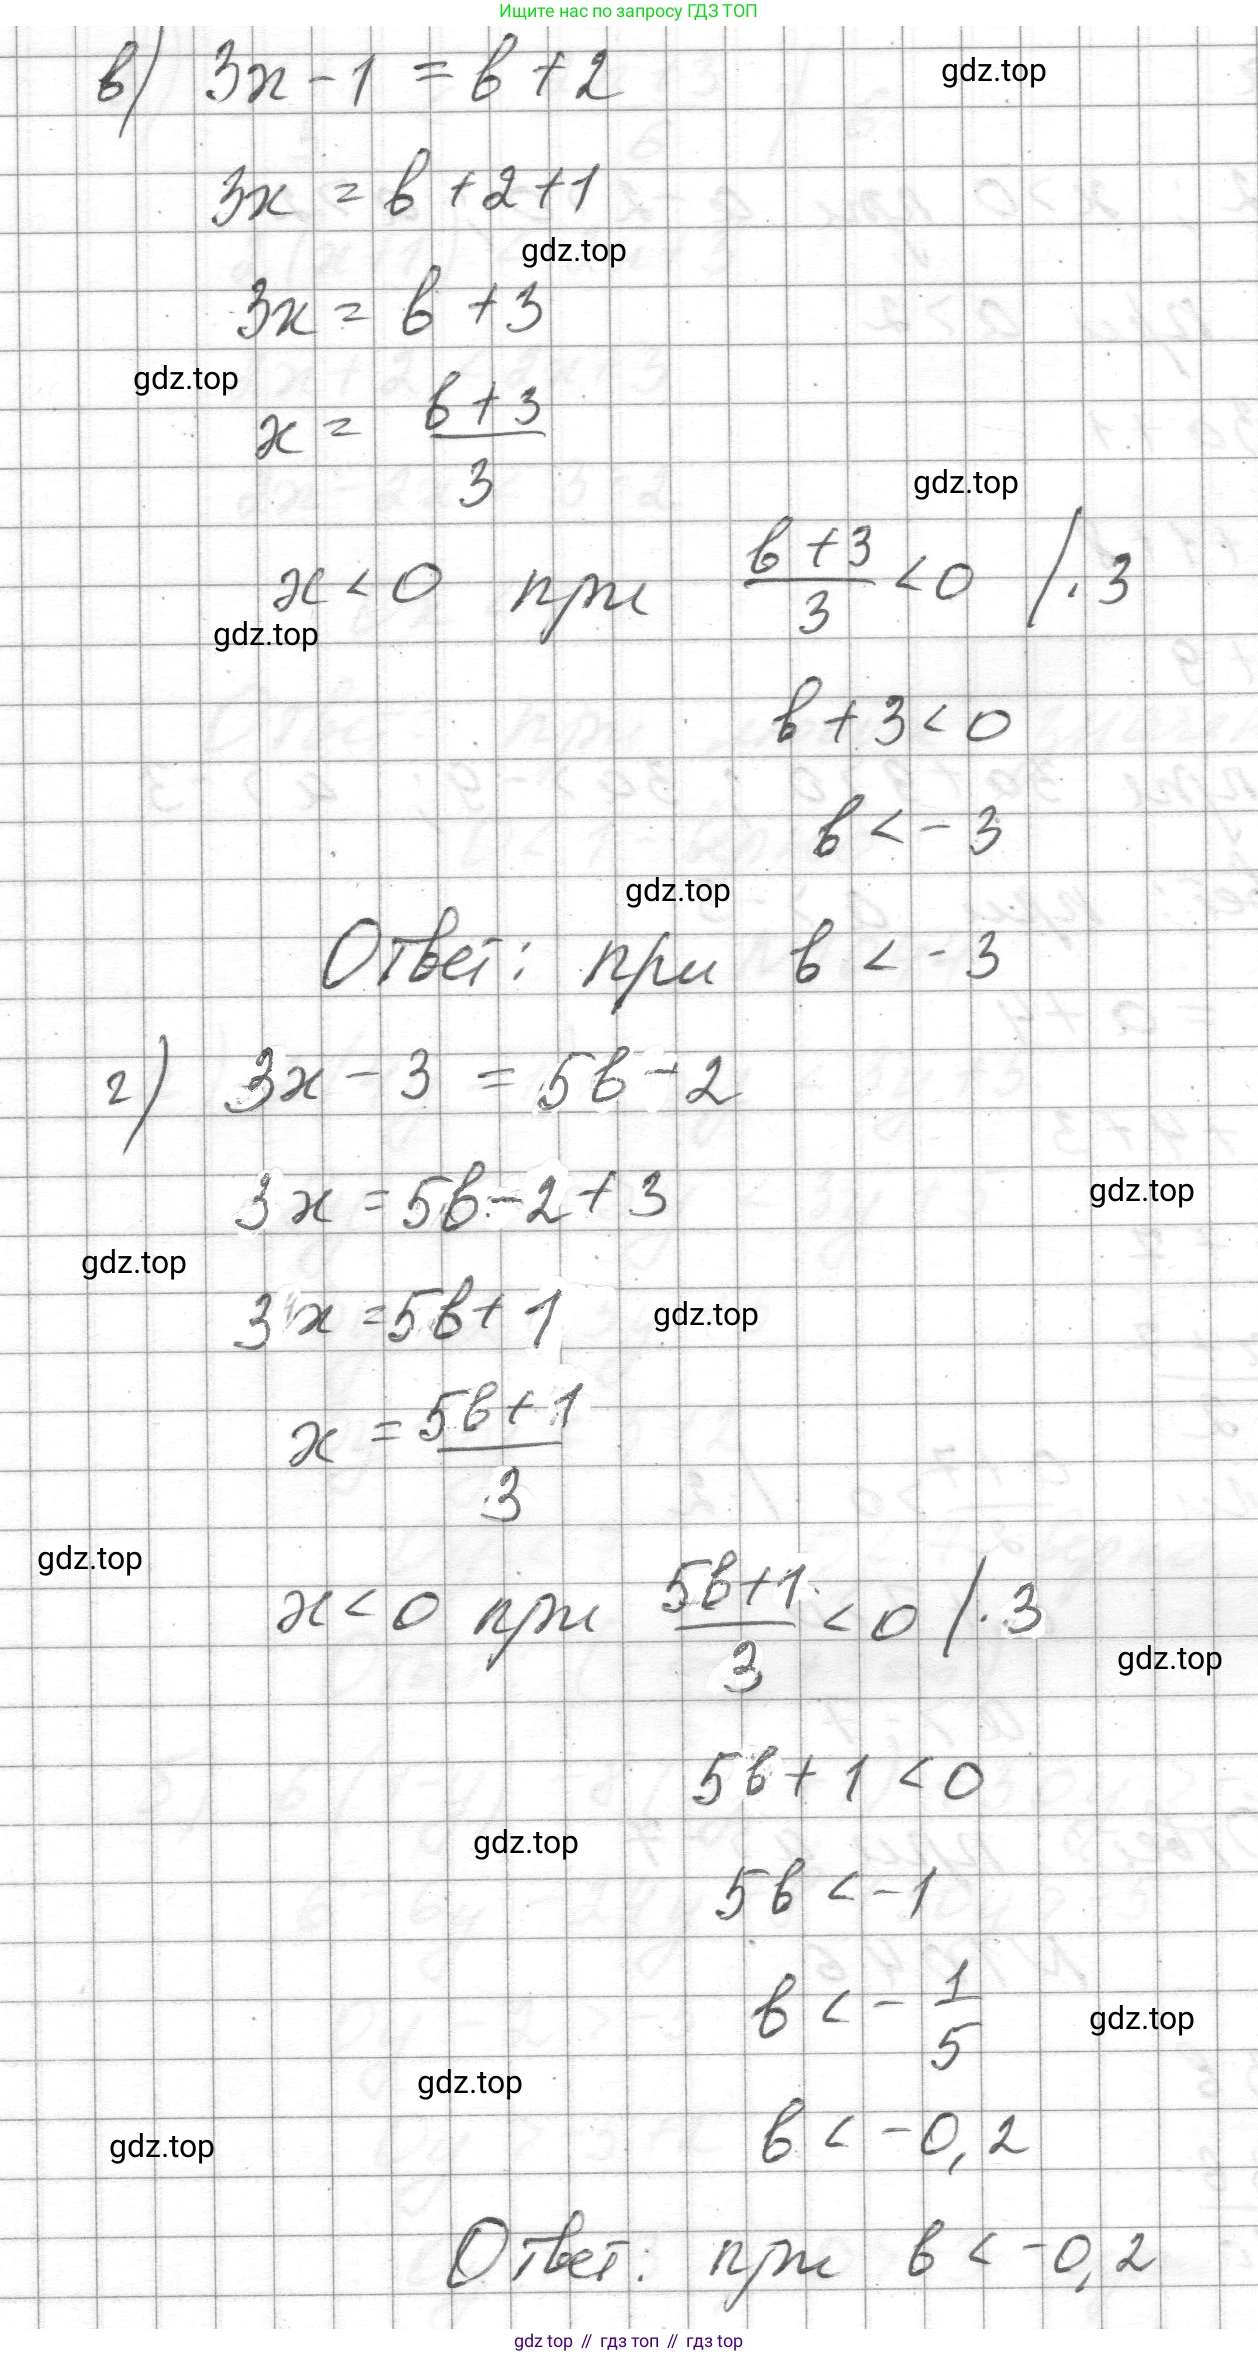 Ищите нас по запросу ГДЗ ТОП
в) 3x - 1 = в + 2
gdz.top
3x = в + 2 + 1
gdz.top
3x = в + 3
gdz.top
x = (в + 3)/3
gdz.top
x < 0 при (в + 3)/3 < 0 / · 3
gdz.top
в + 3 < 0
в < - 3
gdz.top
Ответ: при в < - 3
г) 3x - 3 = 5в - 2
3x = 5в - 2 + 3
gdz.top
gdz.top
3x = 5в + 1
gdz.top
x = (5в + 1)/3
gdz.top
x < 0 при (5в + 1)/3 < 0 / · 3
gdz.top
5в + 1 < 0
gdz.top
5в < - 1
в < - 1/5
gdz.top
gdz.top
в < - 0,2
gdz.top
Ответ: при в < - 0,2
gdz top // гдз топ // gdz top